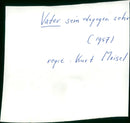 Vater sein dagegen sehr
(1957)
regie Kurt Meisel